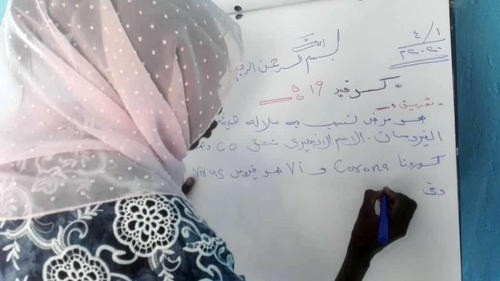 ٤/١
٢٠٢٠م
بسم الله الرحمن الرحيم
* كوفيد ١٩
* تعريف
هو مرض تسبب به سلالة
الفيروسات. الاسم الإنجليزي مشتق CO
كورونا Corona و Vi هو فيروس Virus